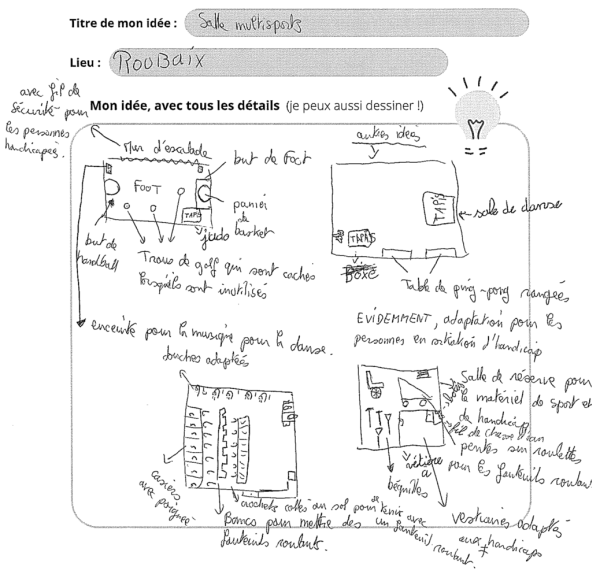 Titre de mon idée : Salle multisports
Lieu : ROUBAIX
Mon idée, avec tous les détails (je peux aussi dessiner !)
avec fil de
sécurité pour
les personnes
handicapées.
Mur d'escalade
but de Foot
FOOT
panier
de
basket
TAPIS
judo
but de
handball
Trous de golf qui sont cachés
lorsqu'ils sont inutilisés
enceinte pour la musique pour la danse.
autres idées
TAPIS
salle de danse
TAPIS
Boxe
Table de ping-pong rangées
EVIDEMMENT, adaptation pour les
personnes en situation d'handicap
douches adaptées
casiers
avec poignée
crochets collés au sol pour tenir avec
un fauteuil
roulant.
Bancs pour mettre des
fauteuils roulants.
Salle de réserve pour
le matériel de sport et
de handicap
pentes sur roulettes
pour les fauteuils roulants
béquilles
vestiaires adaptés
aux handicaps